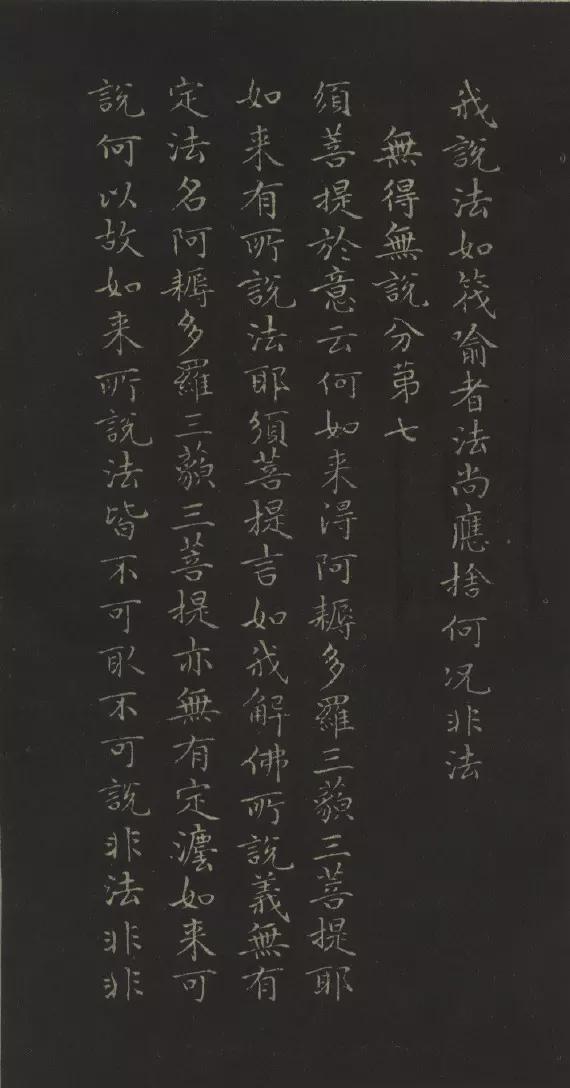 我說法如筏喻者法尚應捨何況非法
無得無說分第七
須菩提於意云何如来得阿耨多羅三藐三菩提耶
如来有所說法耶須菩提言如我解佛所說義無有
定法名阿耨多羅三藐三菩提亦無有定灋如来可
說何以故如来所說法皆不可取不可說非法非非